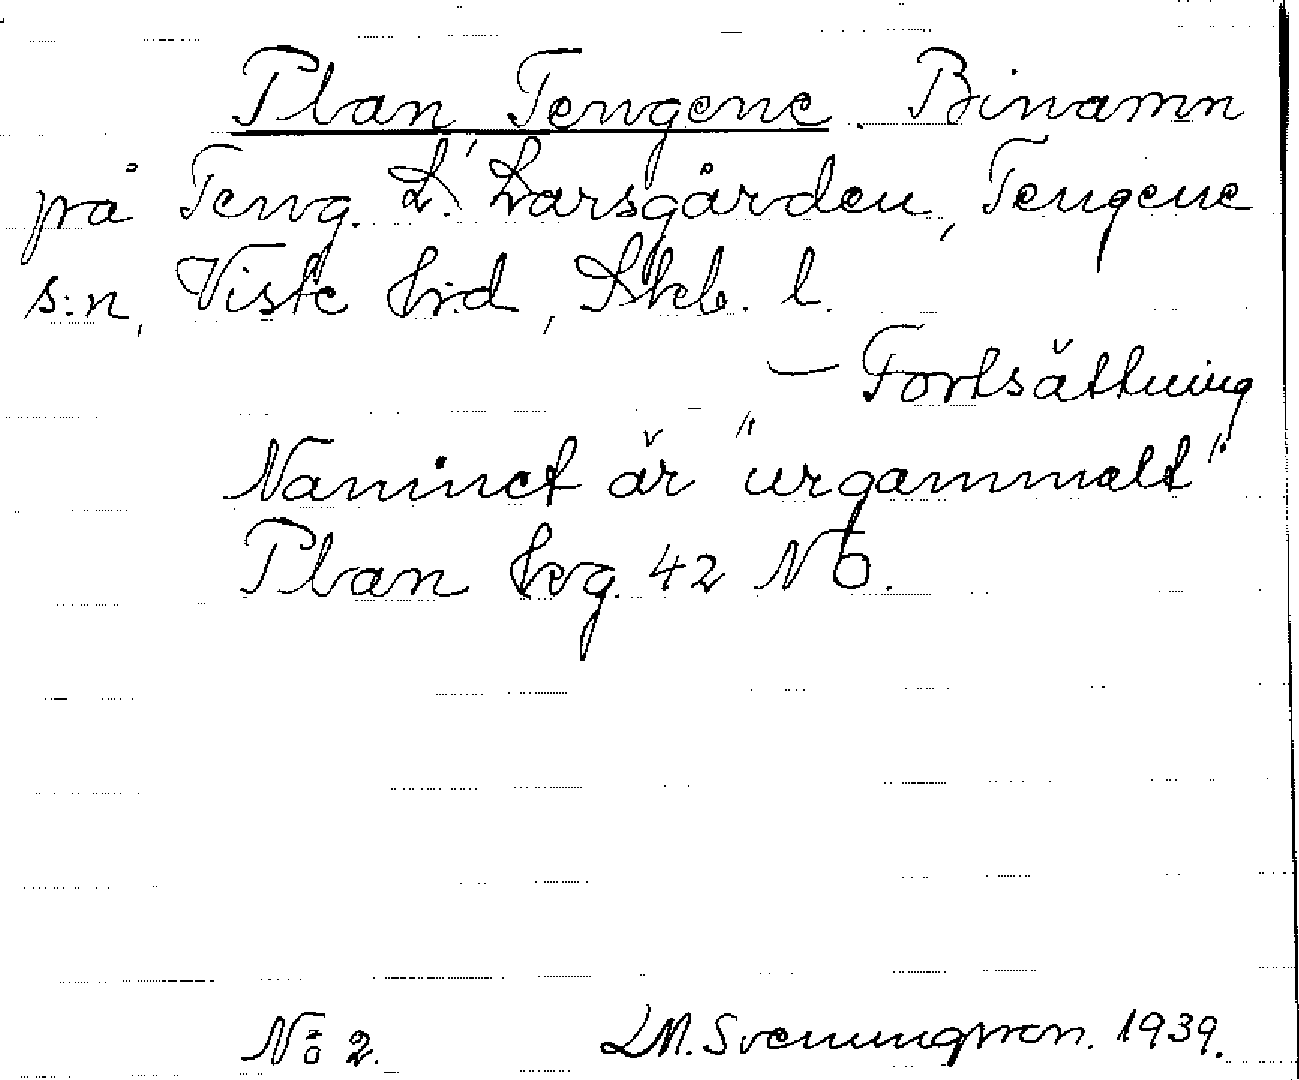 Plan, Tengene. Binamn
på Teng. L. Larsgården, Tengene
s:n, Viste hrd, Skb. l.
— Fortsättning
Namnet är "urgammalt"
Plan hvg. 42 NO.
No 2. LM. Svenungsson. 1939.